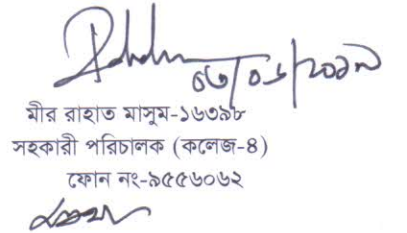 ০৩/০১/২০১৯
মীর রাহাত মাসুম-১৬৩৯৮
সহকারী পরিচালক (কলেজ-৪)
ফোন নং-৯৫৫৬০৬২